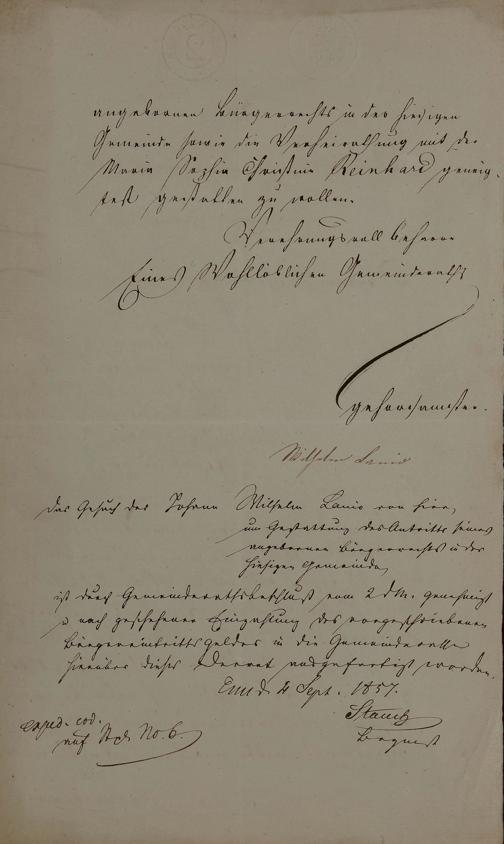 angebornen Bürgerrechts in der hiesigen
Gemeinde sowie die Verheirathung mit der
Maria Sophia Christine Reinhard geneig-
test gestatten zu wollen.
Verehrungsvoll beharre
Eines Wohllöblichen Gemeinderaths
gehorsamster
Wilhelm Lanio
Das Gesuch des Johann Wilhelm Lanio von hier,
um Gestattung des Antritts seines
angebornen Bürgerrechts in der
hiesigen Gemeinde,
ist durch Gemeinderathsbeschluß vom 2 d.M. genehmigt
u. nach geschehener Einzahlung des vorgeschriebenen
Bürgereintrittsgeldes in die Gemeindecasse
hierüber dieses Decret ausgefertigt worden.
d. 4 Sept. 1857.
exped. eod.
auf No. 6.